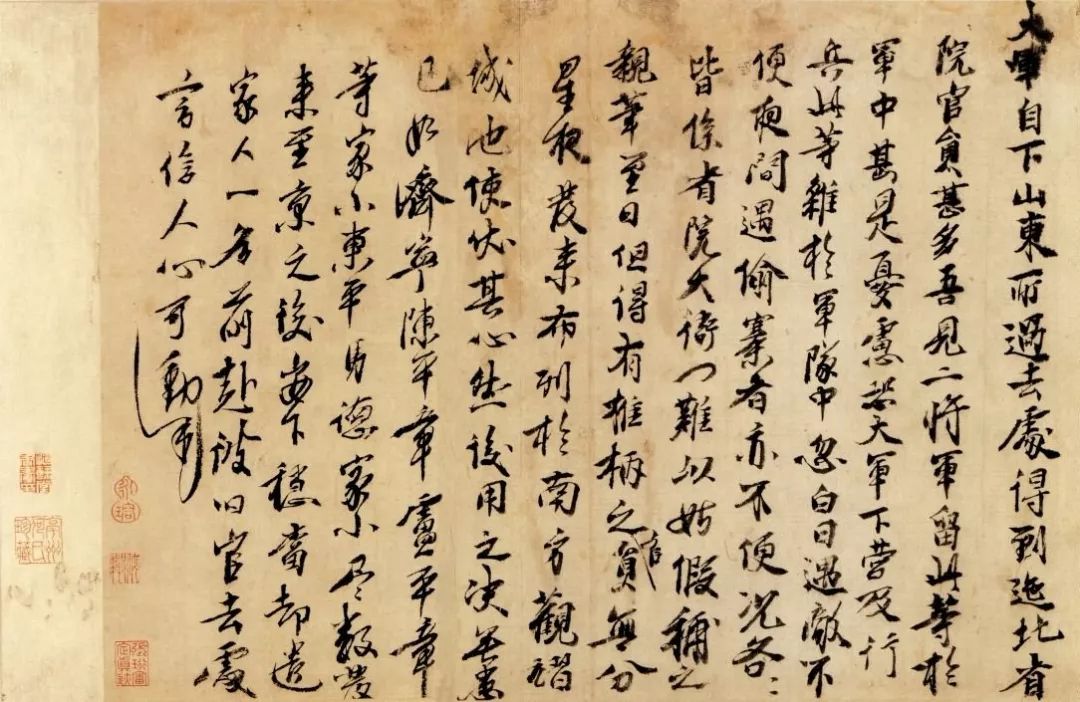 大軍自下山東所過去處得到迤北省
院官員甚多吾見二將軍留此等於
軍中甚是憂慮恐大軍下營及行
兵此等雜於軍隊中忽白日遇敵不
便夜間遇偷寨者亦不便況各〻
皆係省院大衙門難以姑假補之
親筆至日但得有椎柄之官員無分
星夜發來布列於南方觀
城池使伏其心然後用之決無患
已如濟寧陳平章盧平章
等家小東平馬德家小尽數發
來至京之後安下穩當却遣
家人一名前赴彼旧官去處
言信人心可動